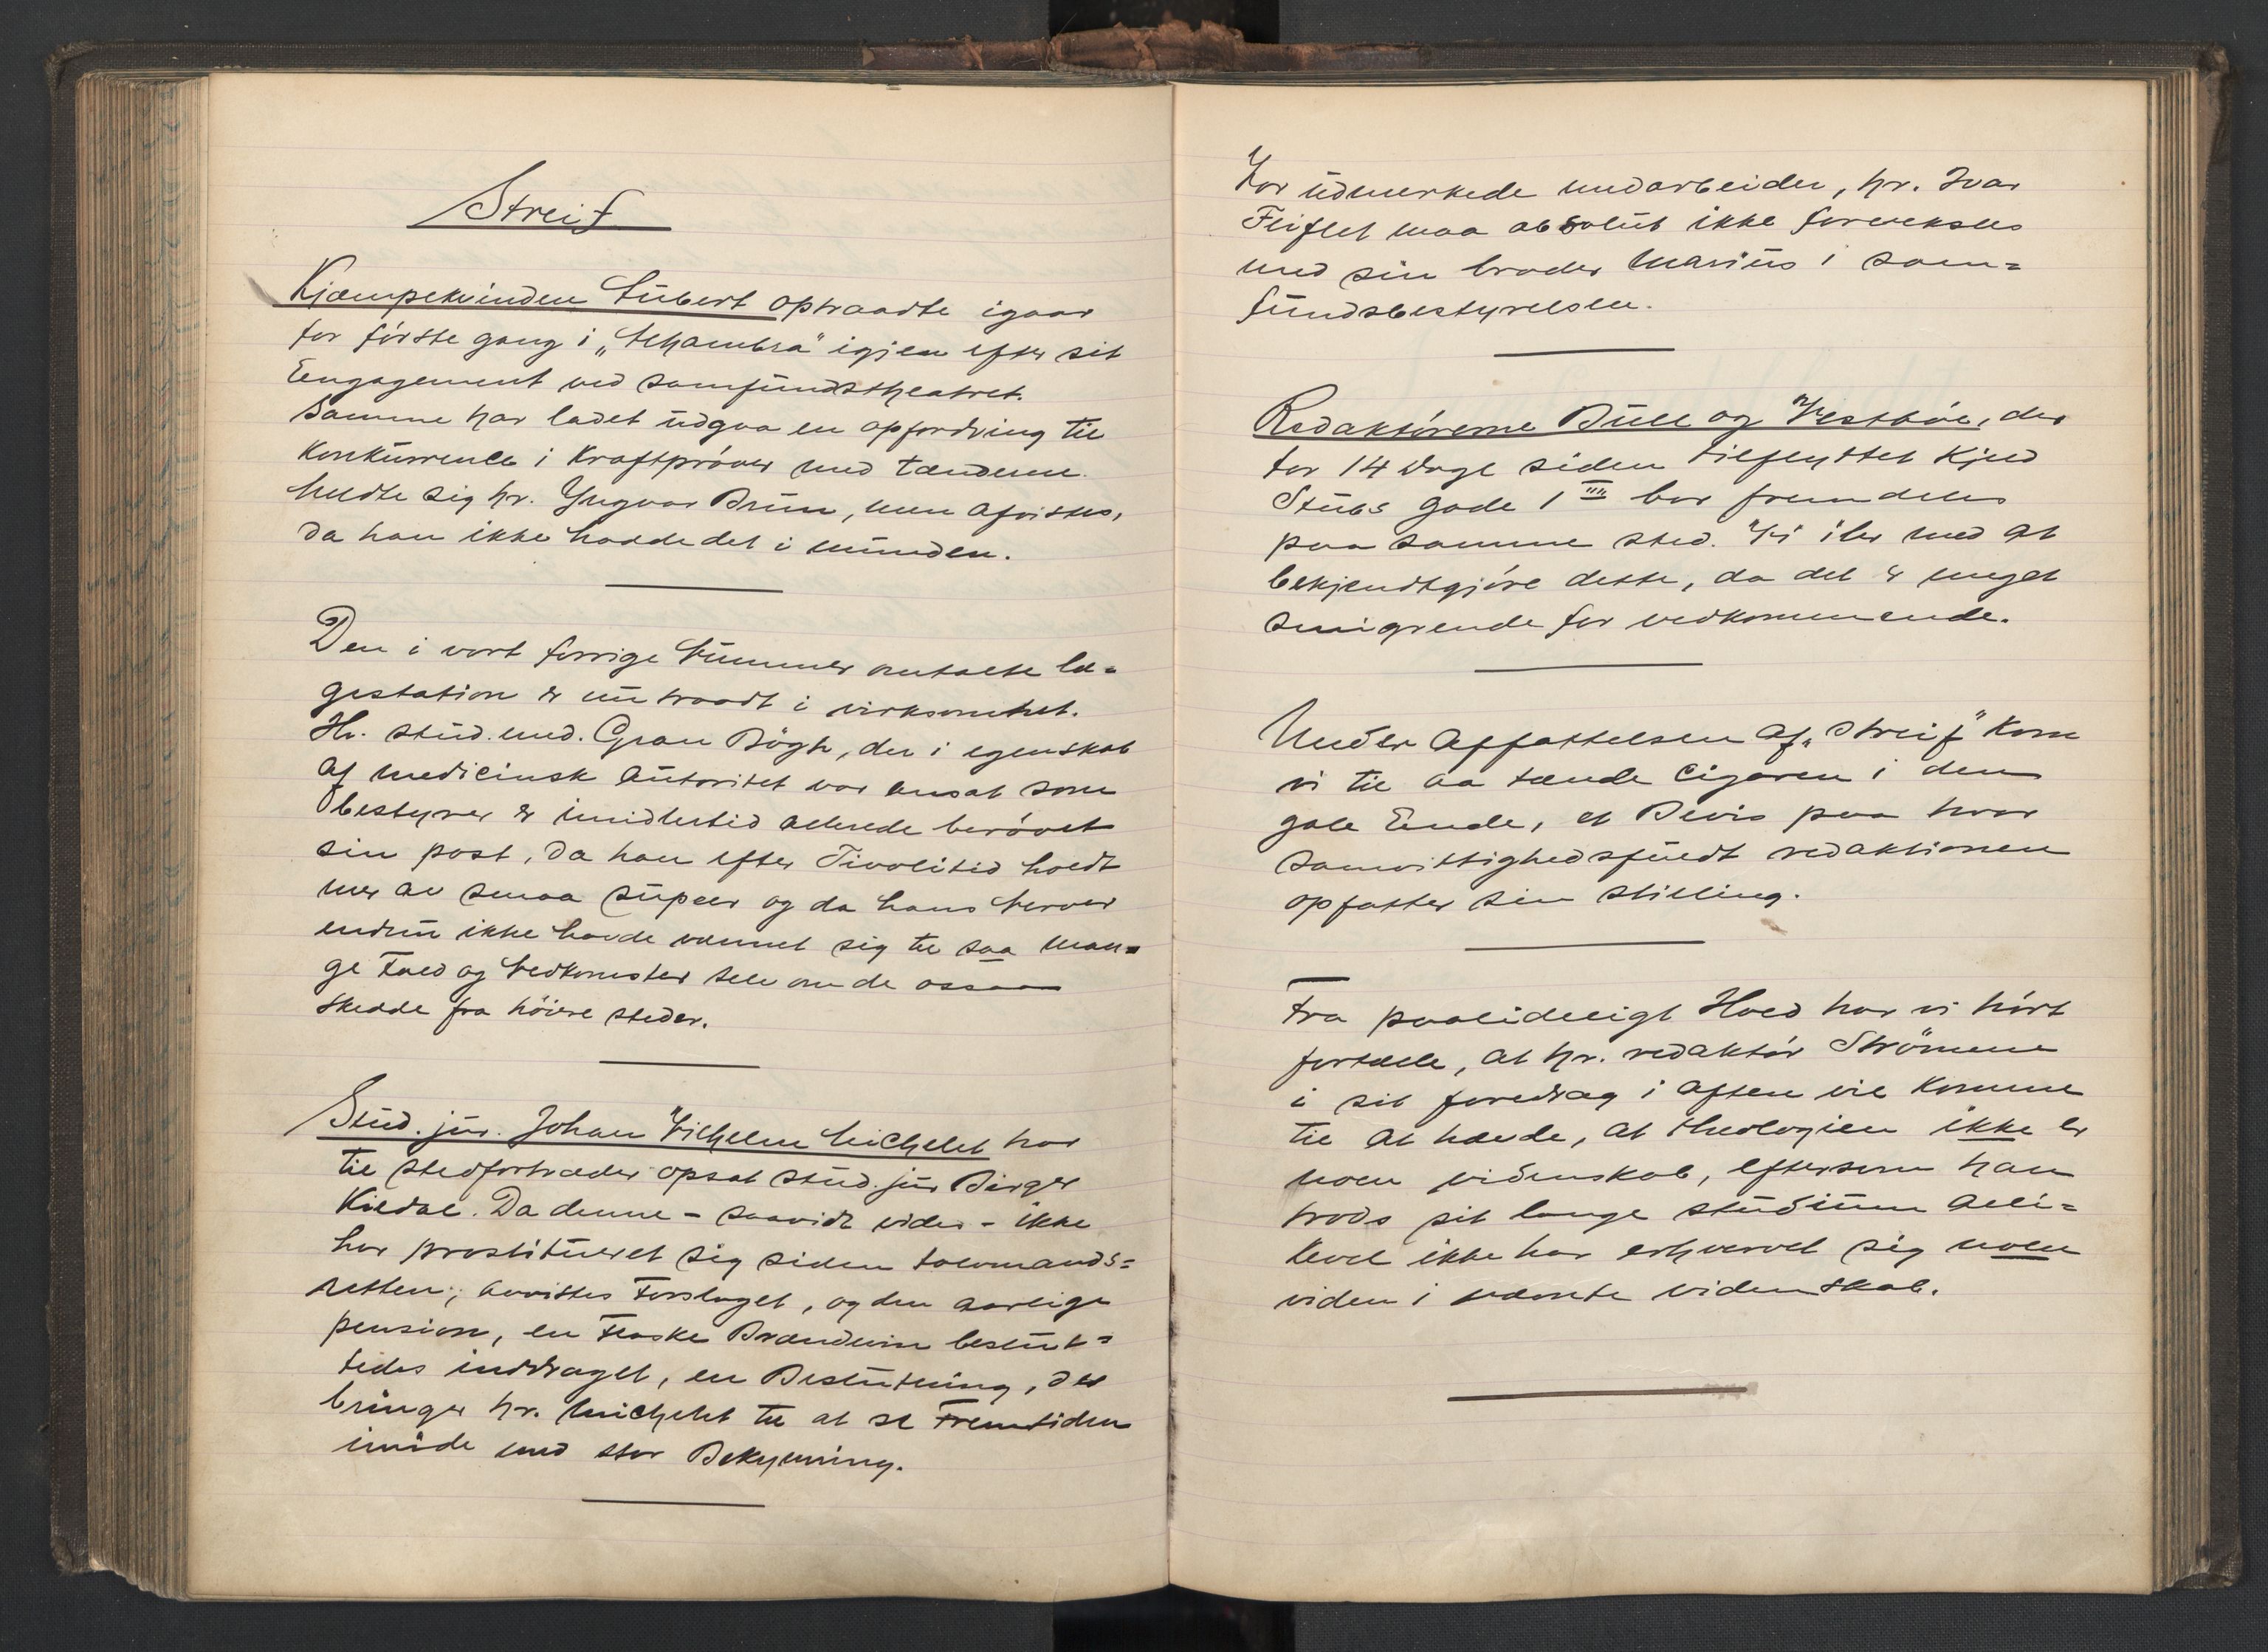 Streif.
Kjæmpekvinden Lubert optraadte igaar
for første gang i „Alhambra" igjen efter sit
Engagement ved samfundstheatret.
Samme har ladet udgaa en opfordring til
Konkurrence i Kraftprøver med tænderne.
Meldte sig hr. Yngvar Brun, men afvistes,
da han ikke havde det i munden.
Den i vort forrige Nummer omtalte læ=
gestation er nu traadt i virksomhet.
Hr. stud. med. Gran Bøgh, der i egenskab
af medicinsk autoritet var ansat som
bestyrer er imidlertid allerede berøvet
sin post, da han efter Tivolitid holdt
mer av smaa supeer og da hans Nerver
endnu ikke havde vænnet sig til saa man=
ge Fald og Nedkomster selv om de ossaa
skedde fra høiere steder.
Stud. jur. Johan Vilhelm Michelet har
til stedfortræder opsat stud. jur Birger
Kildal. Da denne – saavidt vides – ikke
har prostitueret sig siden tolvmands=
retten; avvistes Forslaget, og den aarlige
pension, en Flaske Brændevin beslut=
tedes inddraget, en Beslutning, der
bringer hr. Michelet til at se Fremtiden
imøde med stor Bekymring.
Vor udmerkede medarbeider, hr. Ivar
Fliflet maa absolut ikke forveksles
med sin broder Marius i sam=
fundsbestyrelsen.
Redaktørerne Bull og Vestbøe, der
for 14 Dage siden tilflyttet Kjeld
Stubs gade 1 III bor fremdeles
paa samme sted. Vi iler med at
bekjendtgjøre dette, da det er meget
smigrende for vedkommende.
Under Affattelsen af „Streif" kom
vi til aa tænde Cigaren i den
gale Ende, et Bevis paa hvor
samvittighedsfuldt redaktionen
opfatter sin stilling.
Fra paalideligt Hold har vi hørt
fortælle, at hr. redaktør Strømme
i sit foredrag i aften vil komme
til at hævde, at theologien ikke er
noen videnskab, eftersom han
trods sit lange studium alli=
kevel ikke har erhvervet sig noen
viden i nævnte videnskab.